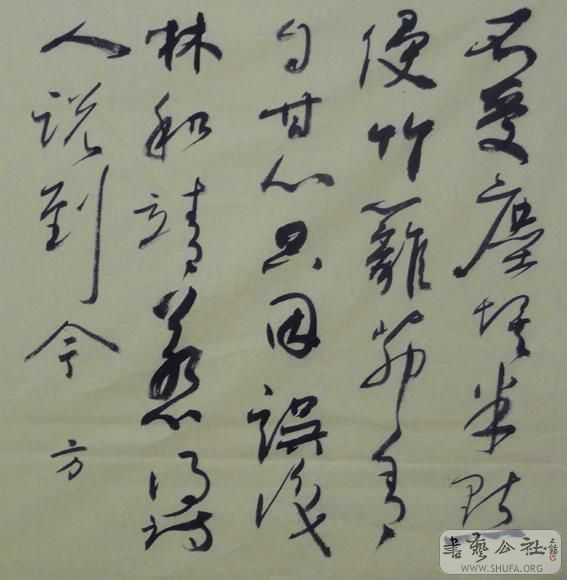 不受塵埃半點
侵竹籬茅舍
自甘心只因誤識
林和靖惹得詩
人説到今 方
書藝公社
WWW.SHUFA.ORG